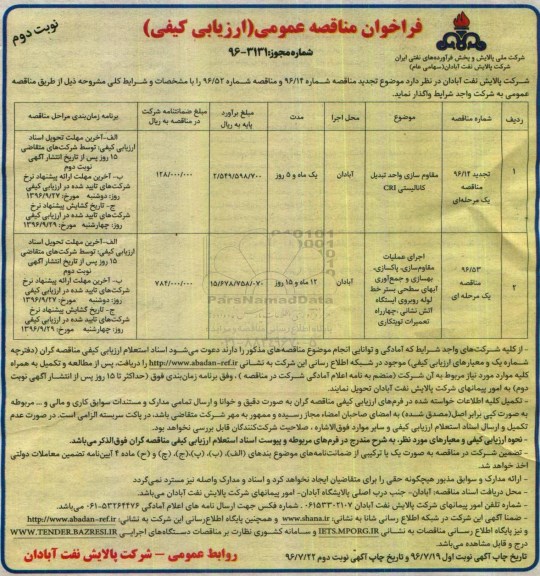 نوبت دوم
فراخوان مناقصه عمومی(ارزیابی کیفی)
شماره مجوز: ۳۱۳۱-۹۶
شرکت ملی پالایش و پخش فرآورده‌های نفتی ایران
شرکت پالایش نفت آبادان(سهامی عام)
شرکت پالایش نفت آبادان در نظر دارد موضوع تجدید مناقصه شماره ۹۶/۱۴ و مناقصه شماره ۹۶/۵۲ را با مشخصات و شرایط کلی مشروحه ذیل از طریق مناقصه
عمومی به شرکت واجد شرایط واگذار نماید.
ردیف
شماره مناقصه
موضوع
محل اجرا
مدت
مبلغ برآورد پایه به ریال
مبلغ ضمانتنامه شرکت در مناقصه به ریال
برنامه زمان‌بندی مراحل مناقصه
۱
تجدید ۹۶/۱۴
مناقصه
یک مرحله‌ای
مقاوم سازی واحد تبدیل
کاتالیستی CRI
آبادان
یک ماه و ۵ روز
۲/۵۴۹/۵۹۸/۷۰۰
۱۲۸/۰۰۰/۰۰۰
الف-آخرین مهلت تحویل اسناد
ارزیابی کیفی: توسط شرکت‌های متقاضی
۱۵ روز پس از تاریخ انتشار آگهی
نوبت دوم
ب- آخرین مهلت ارائه پیشنهاد نرخ
شرکت‌های تایید شده در ارزیابی کیفی
روز: دوشنبه مورخ: ۱۳۹۶/۹/۲۷
ج- تاریخ گشایش پیشنهاد نرخ
شرکت‌های تایید شده در ارزیابی کیفی
روز: چهارشنبه مورخ: ۱۳۹۶/۹/۲۹
۲
۹۶/۵۳
مناقصه
یک مرحله ای
اجرای عملیات
مقاوم‌سازی، پاکسازی،
بهسازی و جمع‌آوری
آبهای سطحی بستر خط
لوله روبروی ایستگاه
آتش نشانی -چهارراه
تعمیرات توبتکاری
آبادان
۱۲ ماه و ۱۵ روز
۱۵/۶۷۸/۷۵۸/۰۷۰
۷۸۴/۰۰۰/۰۰۰
الف-آخرین مهلت تحویل اسناد
ارزیابی کیفی: توسط شرکت‌های متقاضی
۱۵ روز پس از تاریخ انتشار آگهی
نوبت دوم
ب- آخرین مهلت ارائه پیشنهاد نرخ
شرکت‌های تایید شده در ارزیابی کیفی
روز: دوشنبه مورخ: ۱۳۹۶/۹/۲۷
ج- تاریخ گشایش پیشنهاد نرخ
شرکت‌های تایید شده در ارزیابی کیفی
روز: چهارشنبه مورخ: ۱۳۹۶/۹/۲۹
ParsNamadData
- از کلیه شرکت‌های واجد شرایط که آمادگی و توانایی انجام موضوع مناقصه‌های مذکور را دارند دعوت می‌شود اسناد استعلام ارزیابی کیفی مناقصه گران (دفترچه
شماره یک و معیارهای ارزیابی کیفی) موجود در شبکه اطلاع رسانی این شرکت به نشانی http://www.abadan-ref.ir را دریافت، پس از مطالعه و تکمیل به همراه
کلیه موارد مورد نیاز مربوط به آن شرکت (منضم به نامه اعلام آمادگی شرکت در مناقصه)، وفق برنامه زمان‌بندی فوق (حداکثر تا ۱۵ روز پس از انتشار آگهی نوبت
دوم) به امور پیمانهای شرکت پالایش نفت آبادان تحویل نمایند.
- تکمیل کلیه اطلاعات خواسته شده در فرم‌های ارزیابی کیفی مناقصه گران به صورت دقیق و خوانا و ارسال تمامی مدارک و مستندات سوابق کاری و مالی و ... مربوطه
به صورت کپی برابر اصل(مصدق شده) به امضای صاحبان امضاء مجاز رسیده و ممهور به مهر شرکت متقاضی باشد، در پاکت سربسته الزامی است. در صورت عدم
تکمیل و ارسال اسناد استعلام ارزیابی کیفی و سایر موارد فوق‌الاشاره، صلاحیت شرکت‌کنندگان قابل بررسی نخواهد بود.
- نحوه ارزیابی کیفی و معیارهای مورد نظر، به شرح مندرج در فرم‌های مربوطه و پیوست اسناد استعلام ارزیابی کیفی مناقصه گران فوق‌الذکر می‌باشد.
- تضمین شرکت در مناقصه به صورت یک یا ترکیبی از ضمانت‌نامه‌های موضوع بندهای (الف)، (ب)، (پ)،(ج)، (چ)، و (ح) ماده ۴ آیین‌نامه تضمین معاملات دولتی
اخذ خواهد شد.
- ارائه مدارک و سوابق مذبور هیچگونه حقی را برای متقاضیان ایجاد نخواهد کرد و اسناد و مدارک واصله نیز مسترد نمی‌گردد
- محل دریافت اسناد مناقصه: آبادان- جنب درب اصلی پالایشگاه آبادان- امور پیمانهای شرکت پالایش نفت آبادان می‌باشد.
- شماره تلفن امور پیمانهای شرکت پالایش نفت آبادان ۰۶۱۵۳۳۰۲۱۰۷ شماره فکس جهت ارسال نامه های اعلام آمادگی ۵۳۲۶۴۴۷۶-۰۶۱ می‌باشد.
- ضمنا آگهی این شرکت در شبکه اطلاع رسانی شانا به نشانی: www.shana.ir و همچنین پایگاه اطلاع‌رسانی این شرکت به نشانی: http://www.abadan-ref.ir
و نیز پایگاه اطلاع رسانی مناقصات به نشانی IETS.MPORG.IR و سامانه کشوری نظارت بر مناقصات دستگاه‌های اجرایی WWW.TENDER.BAZRESI.IR
درج و قابل مشاهده می‌باشد.
تاریخ چاپ آگهی نوبت اول ۹۶/۷/۱۹ و تاریخ چاپ آگهی نوبت دوم ۹۶/۷/۲۲
روابط عمومی – شرکت پالایش نفت آبادان